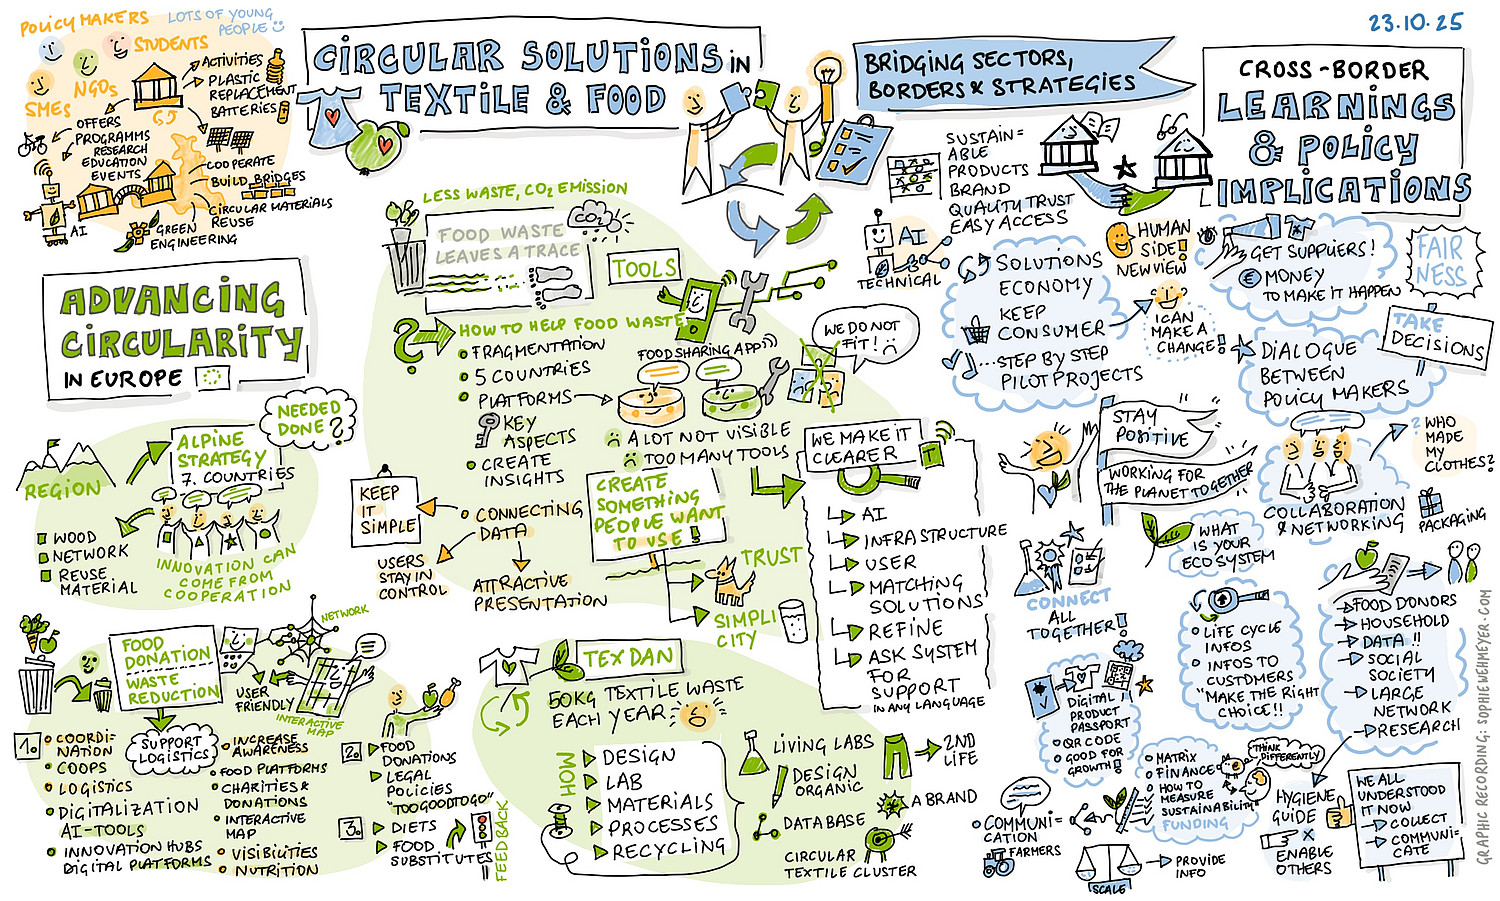 POLICY MAKERS
LOTS OF YOUNG
PEOPLE
STUDENTS
NGOs
SMEs
ACTIVITIES
PLASTIC
REPLACEMENT
BATTERIES
OFFERS
PROGRAMMS
RESEARCH
EDUCATION
EVENTS
COOPERATE
BUILD BRIDGES
CIRCULAR MATERIALS
REUSE
AI
GREEN
ENGINEERING
CIRCULAR SOLUTIONS IN
TEXTILE & FOOD
BRIDGING SECTORS,
BORDERS & STRATEGIES
23.10.25
CROSS-BORDER
LEARNINGS
& POLICY
IMPLICATIONS
ADVANCING
CIRCULARITY
IN EUROPE
REGION
ALPINE
STRATEGY
7. COUNTRIES
NEEDED
DONE?
WOOD
NETWORK
REUSE
MATERIAL
INNOVATION CAN
COME FROM
COOPERATION
FOOD
DONATION
WASTE
REDUCTION
NETWORK
USER
FRIENDLY
INTERACTIVE
MAP
SUPPORT
LOGISTICS
1.
COORDI-
NATION
COOPS
LOGISTICS
DIGITALIZATION
AI-TOOLS
INNOVATION HUBS
DIGITAL PLATFORMS
INCREASE
AWARENESS
FOOD PLATFORMS
CHARITIES &
DONATIONS
INTERACTIVE
MAP
VISIBILITIES
NUTRITION
2.
FOOD
DONATIONS
LEGAL
POLICIES
"TOOGOODTOGO"
3.
DIETS
FOOD
SUBSTITUTES
FEEDBACK
LESS WASTE, CO2 EMISSION
CO2
FOOD WASTE
LEAVES A TRACE
TOOLS
? HOW TO HELP FOOD WASTE
FRAGMENTATION
5 COUNTRIES
PLATFORMS
KEY
ASPECTS
CREATE
INSIGHTS
FOOD SHARING APP
WE DO NOT
FIT!
A LOT NOT VISIBLE
TOO MANY TOOLS
KEEP
IT
SIMPLE
CONNECTING
DATA
USERS
STAY IN
CONTROL
ATTRACTIVE
PRESENTATION
CREATE
SOMETHING
PEOPLE WANT
TO USE!
TRUST
SIMPLI
CITY
WE MAKE IT
CLEARER
AI
INFRASTRUCTURE
USER
MATCHING
SOLUTIONS
REFINE
ASK SYSTEM
FOR
SUPPORT
IN ANY LANGUAGE
TEXDAN
50KG TEXTILE WASTE
EACH YEAR
HOW
DESIGN
LAB
MATERIALS
PROCESSES
RECYCLING
LIVING LABS
DESIGN
ORGANIC
2ND
LIFE
A BRAND
DATABASE
CIRCULAR
TEXTILE CLUSTER
SUSTAIN=
ABLE
PRODUCTS
BRAND
QUALITY TRUST
EASY ACCESS
AI
TECHNICAL
HUMAN
SIDE!
NEW VIEW
SOLUTIONS
ECONOMY
KEEP
CONSUMER
...STEP BY STEP
PILOT PROJECTS
I CAN
MAKE A
CHANGE!
GET SUPPLIERS!
€ MONEY
TO MAKE IT HAPPEN
FAIR
NESS
TAKE
DECISIONS
DIALOGUE
BETWEEN
POLICY MAKERS
STAY
POSITIVE
WORKING FOR
THE PLANET TOGETHER
? WHO
MADE
MY
CLOTHES?
COLLABORATION
& NETWORKING
PACKAGING
WHAT
IS YOUR
ECOSYSTEM
CONNECT
ALL
TOGETHER!
DIGITAL
PRODUCT
PASSPORT
QR CODE
GOOD FOR
GROWTH!
LIFE CYCLE
INFOS
INFOS TO
CUSTOMERS
"MAKE THE RIGHT
CHOICE!!
FOOD DONORS
HOUSEHOLD
DATA !!
SOCIAL
SOCIETY
LARGE
NETWORK
RESEARCH
MATRIX
FINANCE
HOW TO
MEASURE
SUSTAINABILITY
FUNDING
THINK
DIFFERENTLY
COMMUNI-
CATION
FARMERS
SCALE
PROVIDE
INFO
HYGIENE
GUIDE
ENABLE
OTHERS
WE ALL
UNDERSTOOD
IT NOW
COLLECT
COMMUNI-
CATE
GRAPHIC RECORDING: SOPHIEWEHMEYER.COM